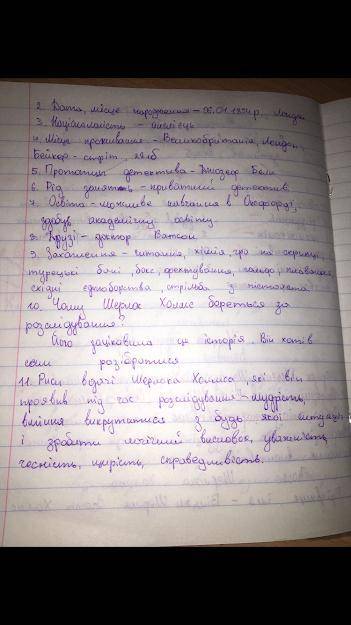 2. Дата, місце народження – 06.01.1854 р, Лондон
3. Національність – англієць
4. Місце проживання – Великобританія, Лондон,
Бейкер-стріт, 221б
5. Прототип детектива – Джозеф Белл
6. Рід занять – приватний детектив
7. Освіта – можливе навчання в Оксфорді,
здобув академічну освіту
8. Друзі – доктор Ватсон
9. Захоплення – читання, хімія, гра на скрипці,
турецькі бані, бокс, фехтування, плавання
східні єдноборства, стрільба з пістолета
10. Чому Шерлок Холмс береться за
розслідування?
Його зацікавила ця історія. Він хотів
сам розібратися
11. Риси вдачі Шерлока Холмса, які він
проявив під час розслідування – мудрість,
вміння викрутатися з будь якої ситуації
і зробити логічний висновок, уважність,
чесність, щирість, справедливість.